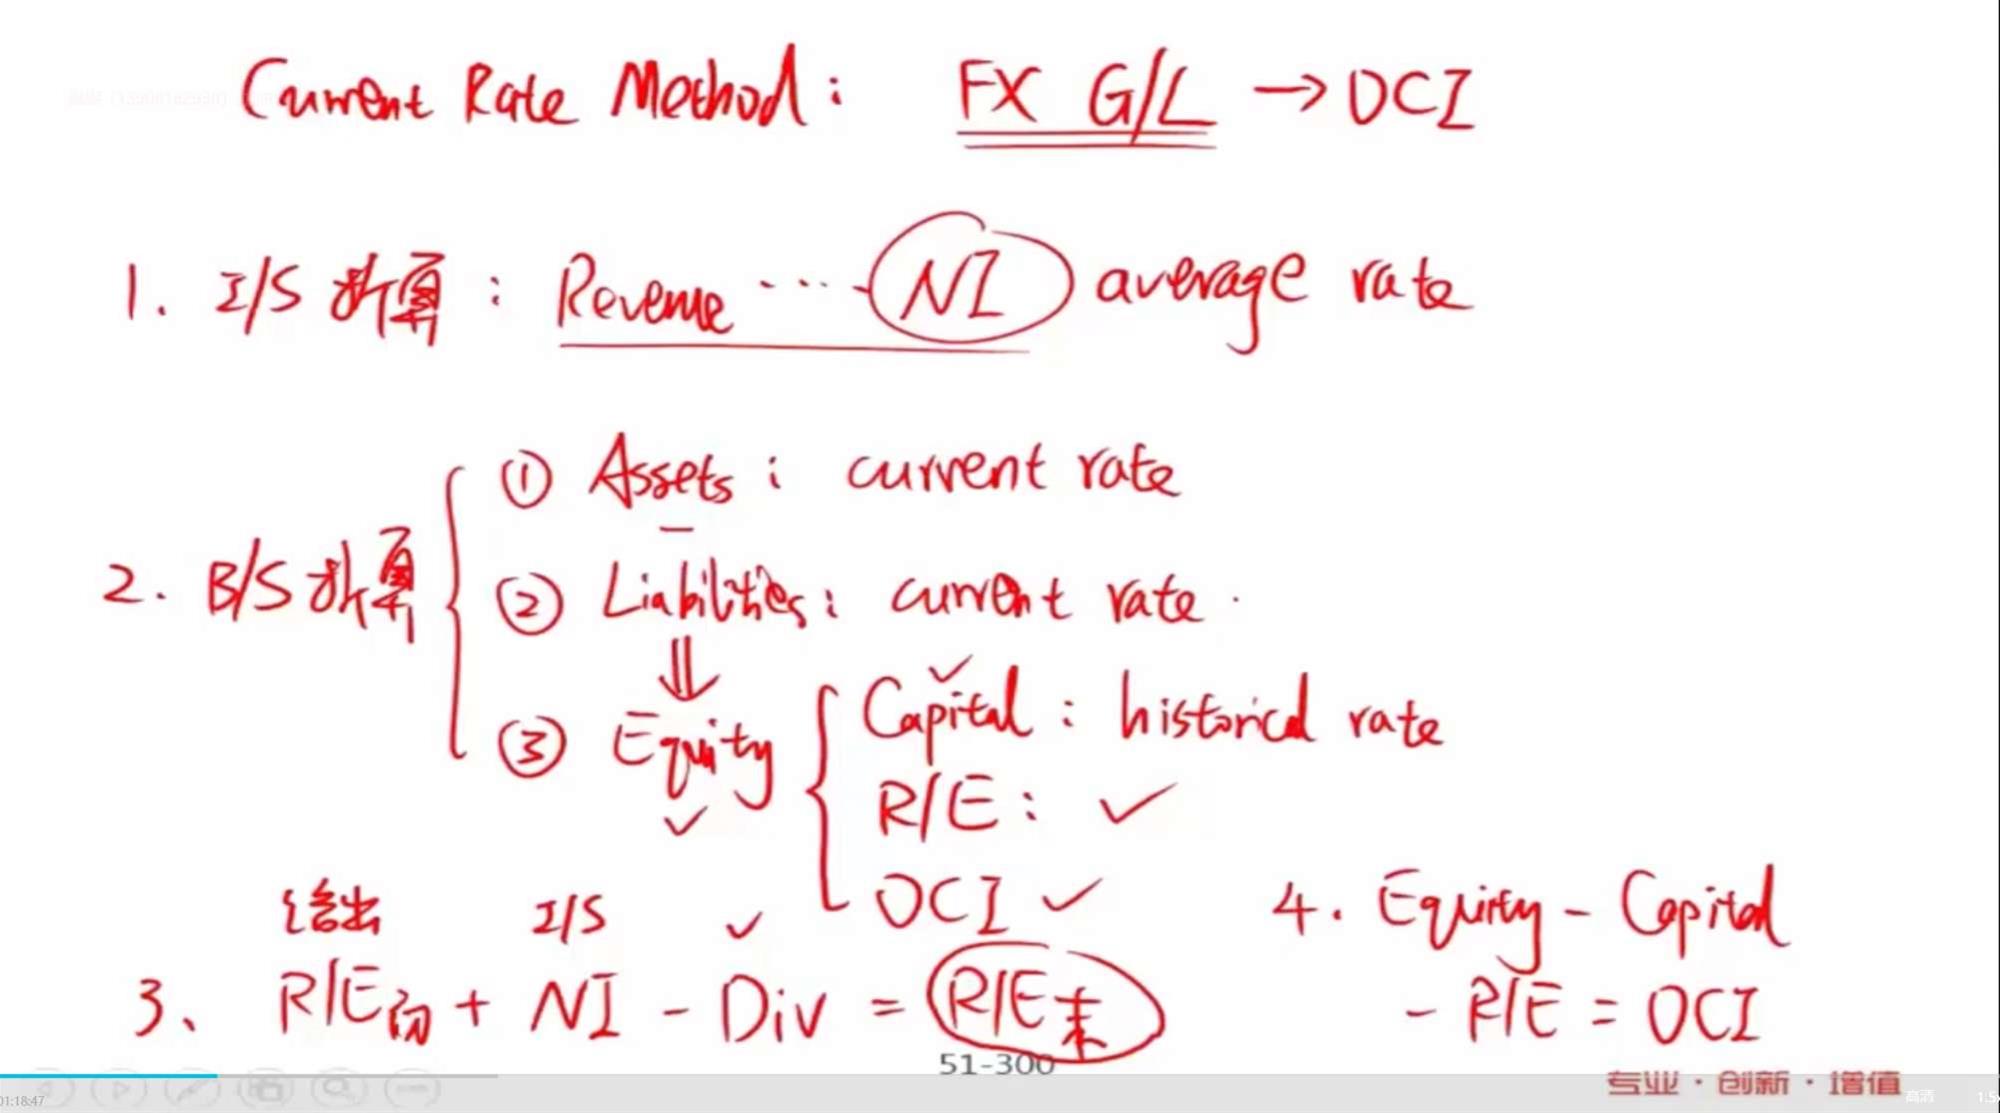 Current Rate Method: FX G/L → OCI
1. I/S 折算: Revenue ···· NI average rate
① Assets: current rate
-
2. B/S 折算 ② Liabilities: current rate.
⇓
③ Equity ✓ Capital: historical rate
R/E: ✓
OCI ✓
给出 I/S ✓
3、 R/E初 + NI - Div = R/E末
4. Equity - Capital
- R/E = OCI
51-300
专业·创新·增值
01:18:47
高清 1.5x